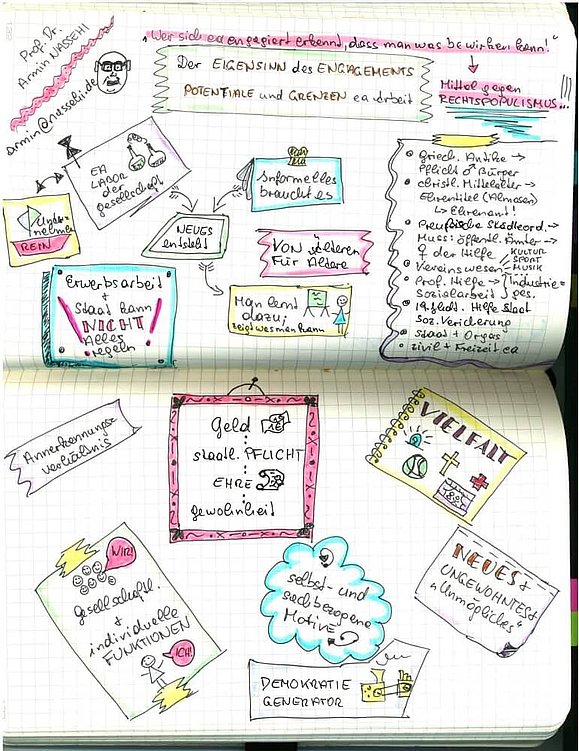 Prof. Dr.
Armin NASSEHI
armin@nassehi.de
"Wer sich ea engagiert erkennt, dass man was bewirken kann!"
Der EIGENSINN des ENGAGEMENTS
POTENTIALE und GRENZEN ea Arbeit
Mittel gegen
RECHTSPOPULISMUS... !!!
EA
LABOR
der
Gesellschaft
Unter-
nehmen
REIN
NEUES
entsteht
Informelles
braucht es
VON Älteren
Für Ältere
Man lernt
dazu,
zeigt was man kann
Erwerbsarbeit
+
Staat kann
NICHT
Alles
regeln
Griech. Antike →
Pflicht ♂ Bürger
christl. Mittelalter →
Ehrentitel (Almosen)
↳ Ehrenamt!
Preußische Städteord. →
Muss: öffentl. Ämter →
♀ der Hilfe
Vereinswesen
KULTUR
SPORT
MUSIK
Prof. Hilfe →
Sozialarbeit
Industrie=
ges.
19. Jhdt. Hilfe Staat
Soz. Versicherung
Staat + Orgas
zivil + Freizeit ea
Anerkennungs=
verhältnis
Geld
staatl. PFLICHT
EHRE
gewohnheit
VIELFALT
WIR!
gesellschaftl.
+
individuelle
FUNKTIONEN
ICH!
selbst- und
sachbezogene
Motive
NEUES +
UNGEWOHNTES +
"Unmögliches"
DEMOKRATIE
GENERATOR